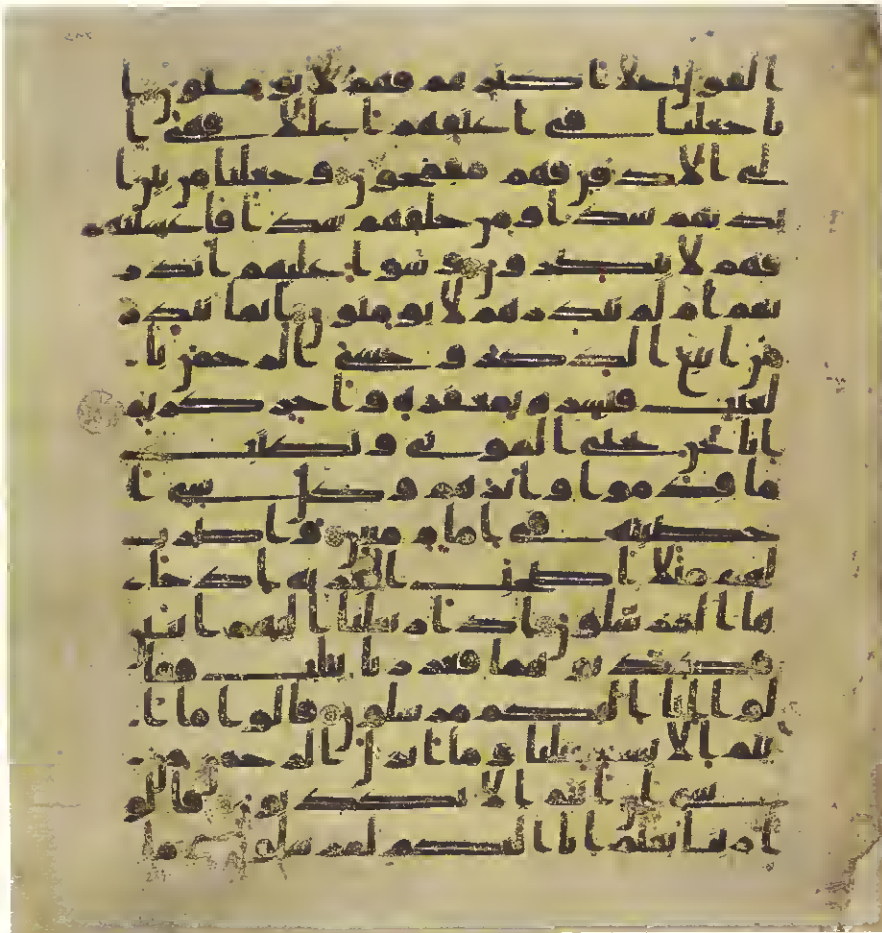 القول على اكثرهم فهم لا يومنون ا
نا جعلنا في اعنقهم اغللا فهي ا
لى الاذقن فهم مقمحون وجعلنا من بين ا
يديهم سدا ومن خلفهم سدا فاغشينهم
فهم لا يبصرون وسوا عليهم اانذر
تهم ام لم تنذرهم لا يومنون انما تنذر
من اتبع الذكر وخشي الرحمن با
لغيب فبشره بمغفرة واجر كريم
انا نحن نحي الموتى ونكتب
ما قدموا واثرهم وكل شي ا
حصينه في امام مبين واضرب
لهم مثلا اصحب القرية اذ جا
ها المرسلون اذ ارسلنا اليهم اثنين
فكذبوهما فعززنا بثلث فقا
لوا انا اليكم مرسلون قالوا ما ا
نتم الا بشر مثلنا وما انزل الرحمن من
شي ان انتم الا تكذبون قالو
ا ربنا يعلم انا اليكم لمرسلون وما